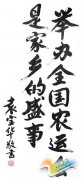 举办全国农运
是家乡的盛事
袁宝华敬书